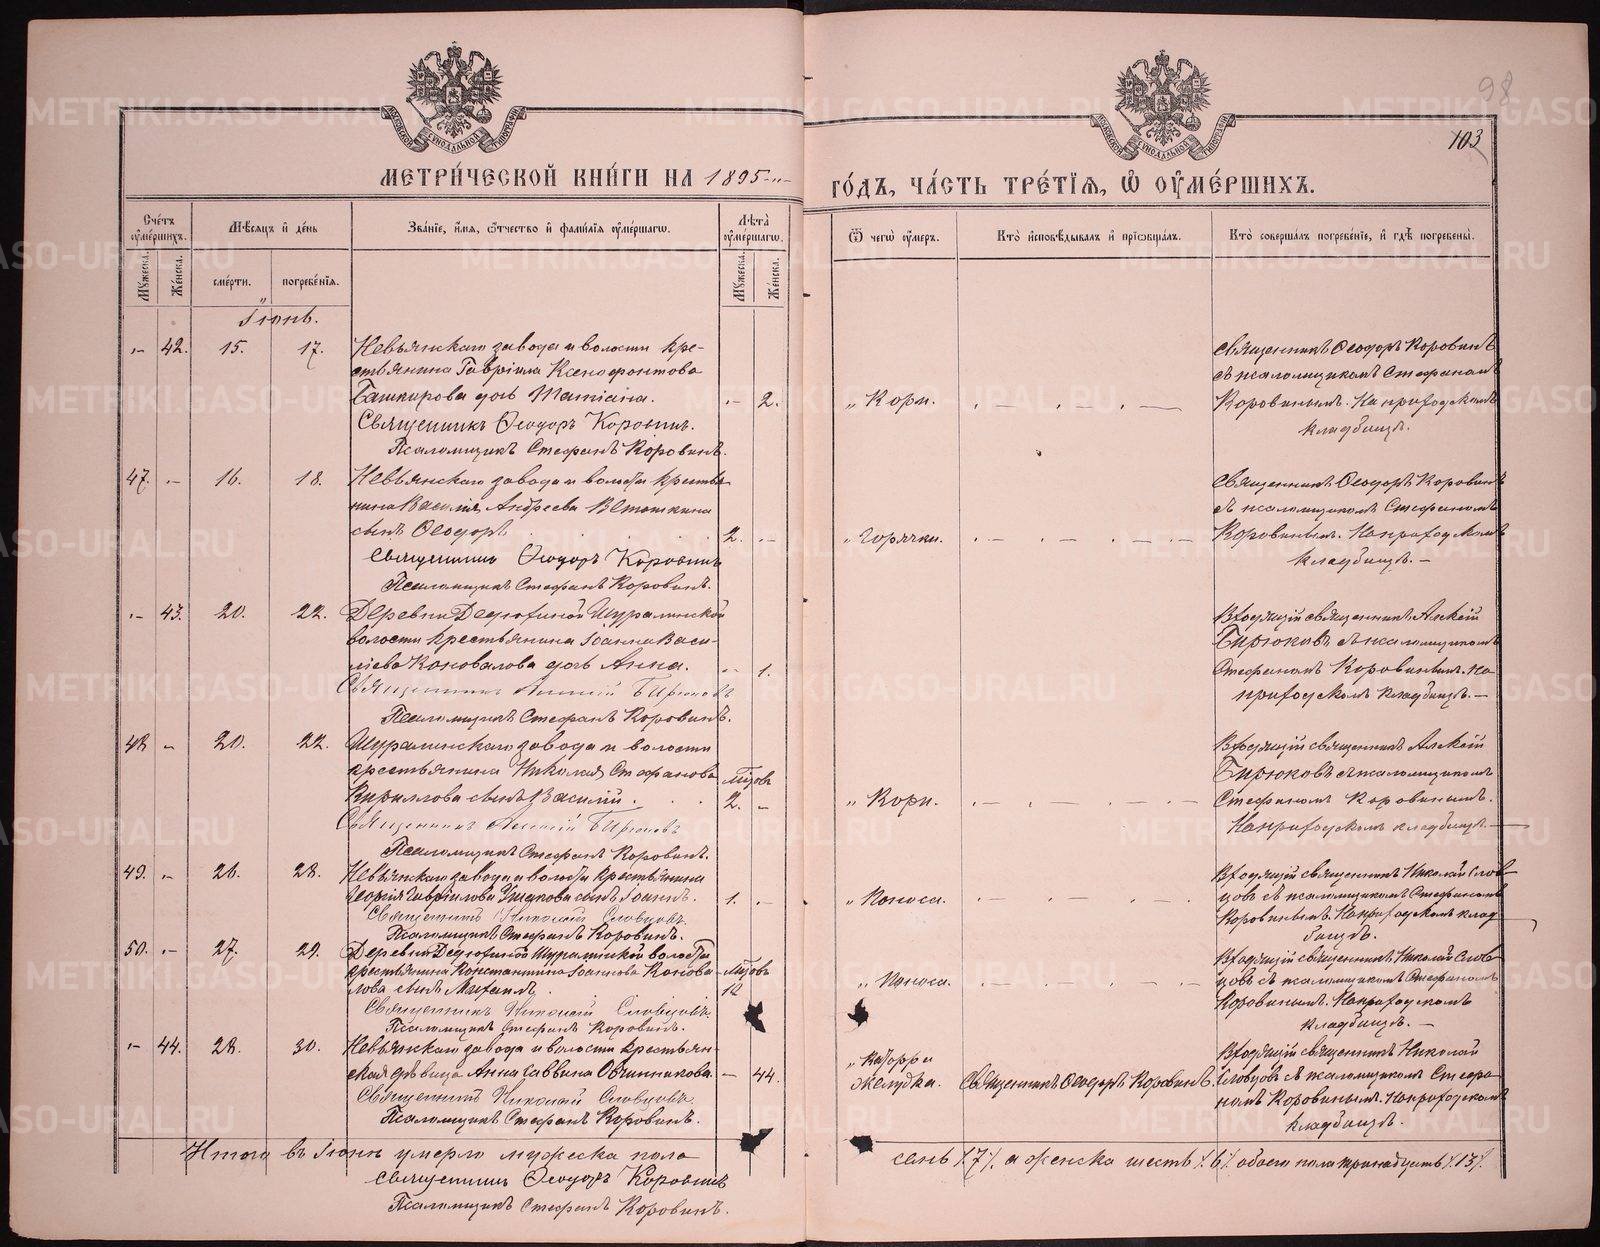 98
103
МЕТРИ́ЧЕСКОЙ КНИ́ГИ НА 1895
ГО́ДЪ, ЧА́СТЬ ТРЕ́ТІѦ, Ѡ҆ ОУ҆МЕ́РШИХЪ.
Сче́тъ оу҆ме́ршихъ.
Мꙋ́жеска.
Же́нска.
Мѣ́сѧцъ и҆ де́нь
сме́рти.
погребе́нїѧ.
Зва́нїе, и҆́мѧ, ѻ҆́тчество и҆ фами́лїѧ оу҆ме́ршагѡ.
Лѣ́та̀ оу҆ме́ршагѡ.
Мꙋ́жеска.
Же́нска.
Ѿ чегѡ̀ оу҆́меръ.
Кто̀ и҆сповѣ́дывалъ и҆ прїѡбща́лъ.
Кто̀ соверша́лъ погребе́нїе, и҆ гдѣ̀ погребены̀.
Іюнь.
42. 15. 17. Невьянскаго завода и волости кре-
стьянина Гавріила Ксенофонтова
Башкирова дочь Татіана. 2. Кори.
Священникъ Ѳеодоръ Коровинъ.
Псаломщикъ Стефанъ Коровинъ.
Священникъ Ѳеодоръ Коровинъ
съ псаломщикомъ Стефаномъ
Коровинымъ. На приходскомъ
кладбищѣ.
47. 16. 18. Невьянскаго завода и волости крестья
нина Василія Андреева Вѣтошкина
сынъ Ѳеодоръ 2. Горячки.
Священникъ Ѳеодоръ Коровинъ
Псаломщикъ Стефанъ Коровинъ.
Священникъ Ѳеодоръ Коровинъ
съ псаломщикомъ Стефаномъ
Коровинымъ. На приходскомъ
кладбищѣ.
43. 20. 22. Деревни Дедюгиной Шуралинской
волости крестьянина Іоанна Васи-
льева Коновалова дочь Анна. 1.
Священникъ Алексій Бирюковъ
Псаломщикъ Стефанъ Коровинъ.
Входящій священникъ Алексій
Бирюковъ съ псаломщикомъ
Стефаномъ Коровинымъ. На
приходскомъ кладбищѣ.
48. 20. 22. Шуралинскаго завода и волости
крестьянина Николая Стефанова
Кириллова сынъ Василій. Мѣсяцъ 2. Кори.
Священникъ Алексій Бирюковъ
Псаломщикъ Стефанъ Коровинъ.
Входящій священникъ Алексій
Бирюковъ съ псаломщикомъ
Стефаномъ Коровинымъ.
На приходскомъ кладбищѣ.
49. 26. 28. Невьянскаго завода и волости крестьянина
Георгія Гавріилова Ушакова сынъ Іоаннъ. 1. Поноса.
Священникъ Николай Словцовъ.
Псаломщикъ Стефанъ Коровинъ.
Входящій священникъ Николай Слов-
цовъ съ псаломщикомъ Стефаномъ
Коровинымъ. На приходскомъ клад-
бищѣ.
50. 27. 29. Деревни Дедюгиной Шуралинской волости
крестьянина Константина Іоаннова Конова-
лова сынъ Михаилъ. Поноса.
Священникъ Николай Словцовъ.
Псаломщикъ Стефанъ Коровинъ.
Входящій священникъ Николай Слов-
цовъ съ псаломщикомъ Стефаномъ
Коровинымъ. На приходскомъ
кладбищѣ.
44. 28. 30. Невьянскаго завода и волости крестьян-
ская дѣвица Анна Саввина Овчинникова 44. Катарра
желудка. Священникъ Ѳеодоръ Коровинъ.
Священникъ Николай Словцовъ.
Псаломщикъ Стефанъ Коровинъ.
Входящій священникъ Николай
Словцовъ съ псаломщикомъ Стефа-
номъ Коровинымъ. На приходскомъ
кладбищѣ.
Итого въ Іюнѣ умерло мужеска пола семь /7/, а женска шесть /6/ обоего пола тринадцать /13/.
Священникъ Ѳеодоръ Коровинъ
Псаломщикъ Стефанъ Коровинъ.